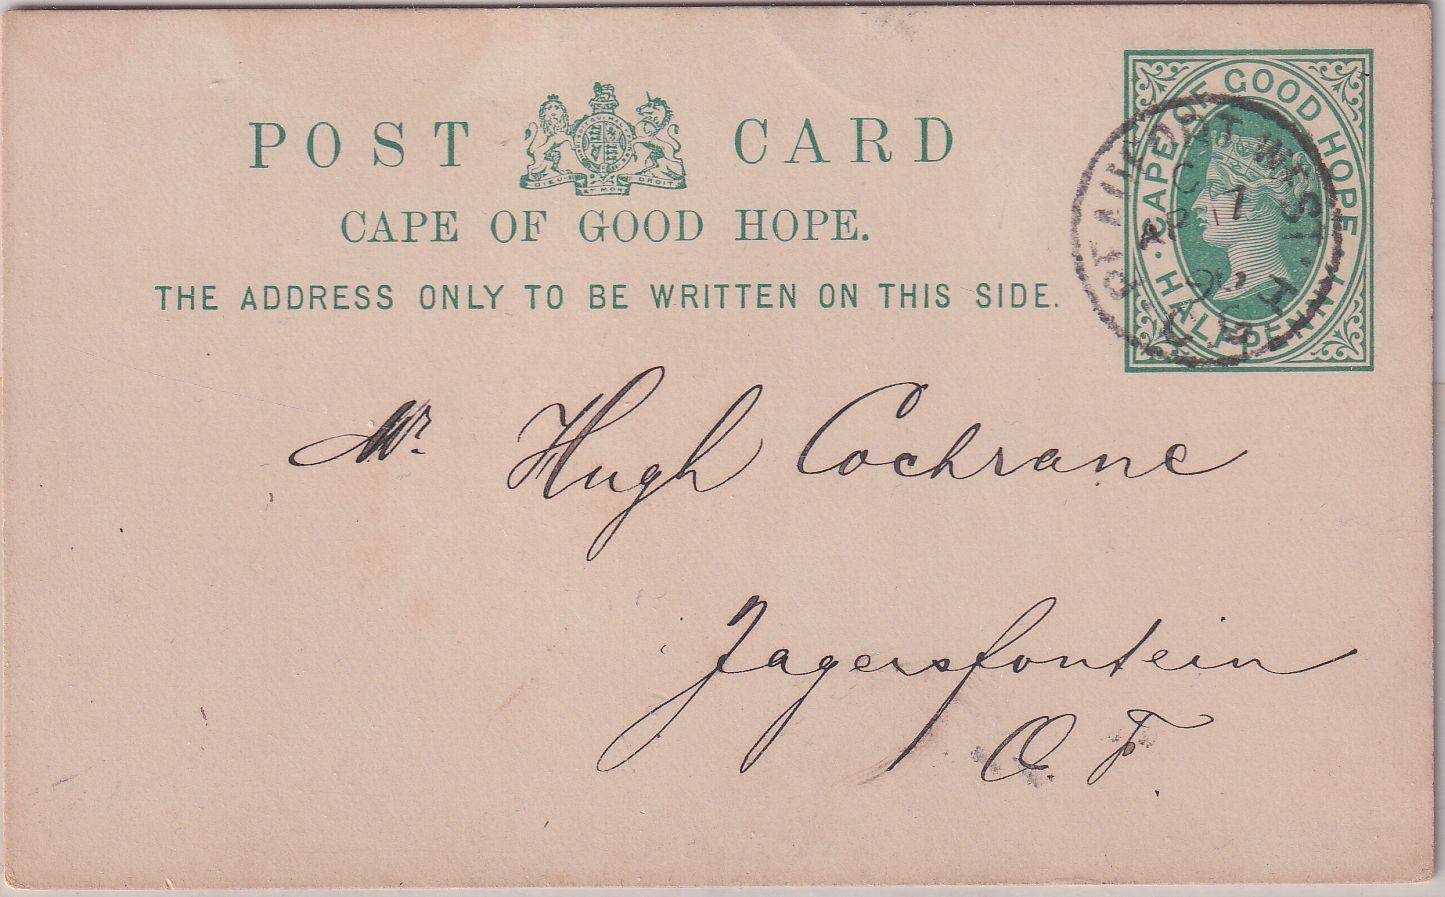 POST CARD
DIEU ET MON DROIT
CAPE OF GOOD HOPE.
THE ADDRESS ONLY TO BE WRITTEN ON THIS SIDE.
CAPE OF GOOD HOPE
HALFPENNY
WEST.
C
AP 17
Mr. Hugh Cochrane
Jagersfontein
O. F.